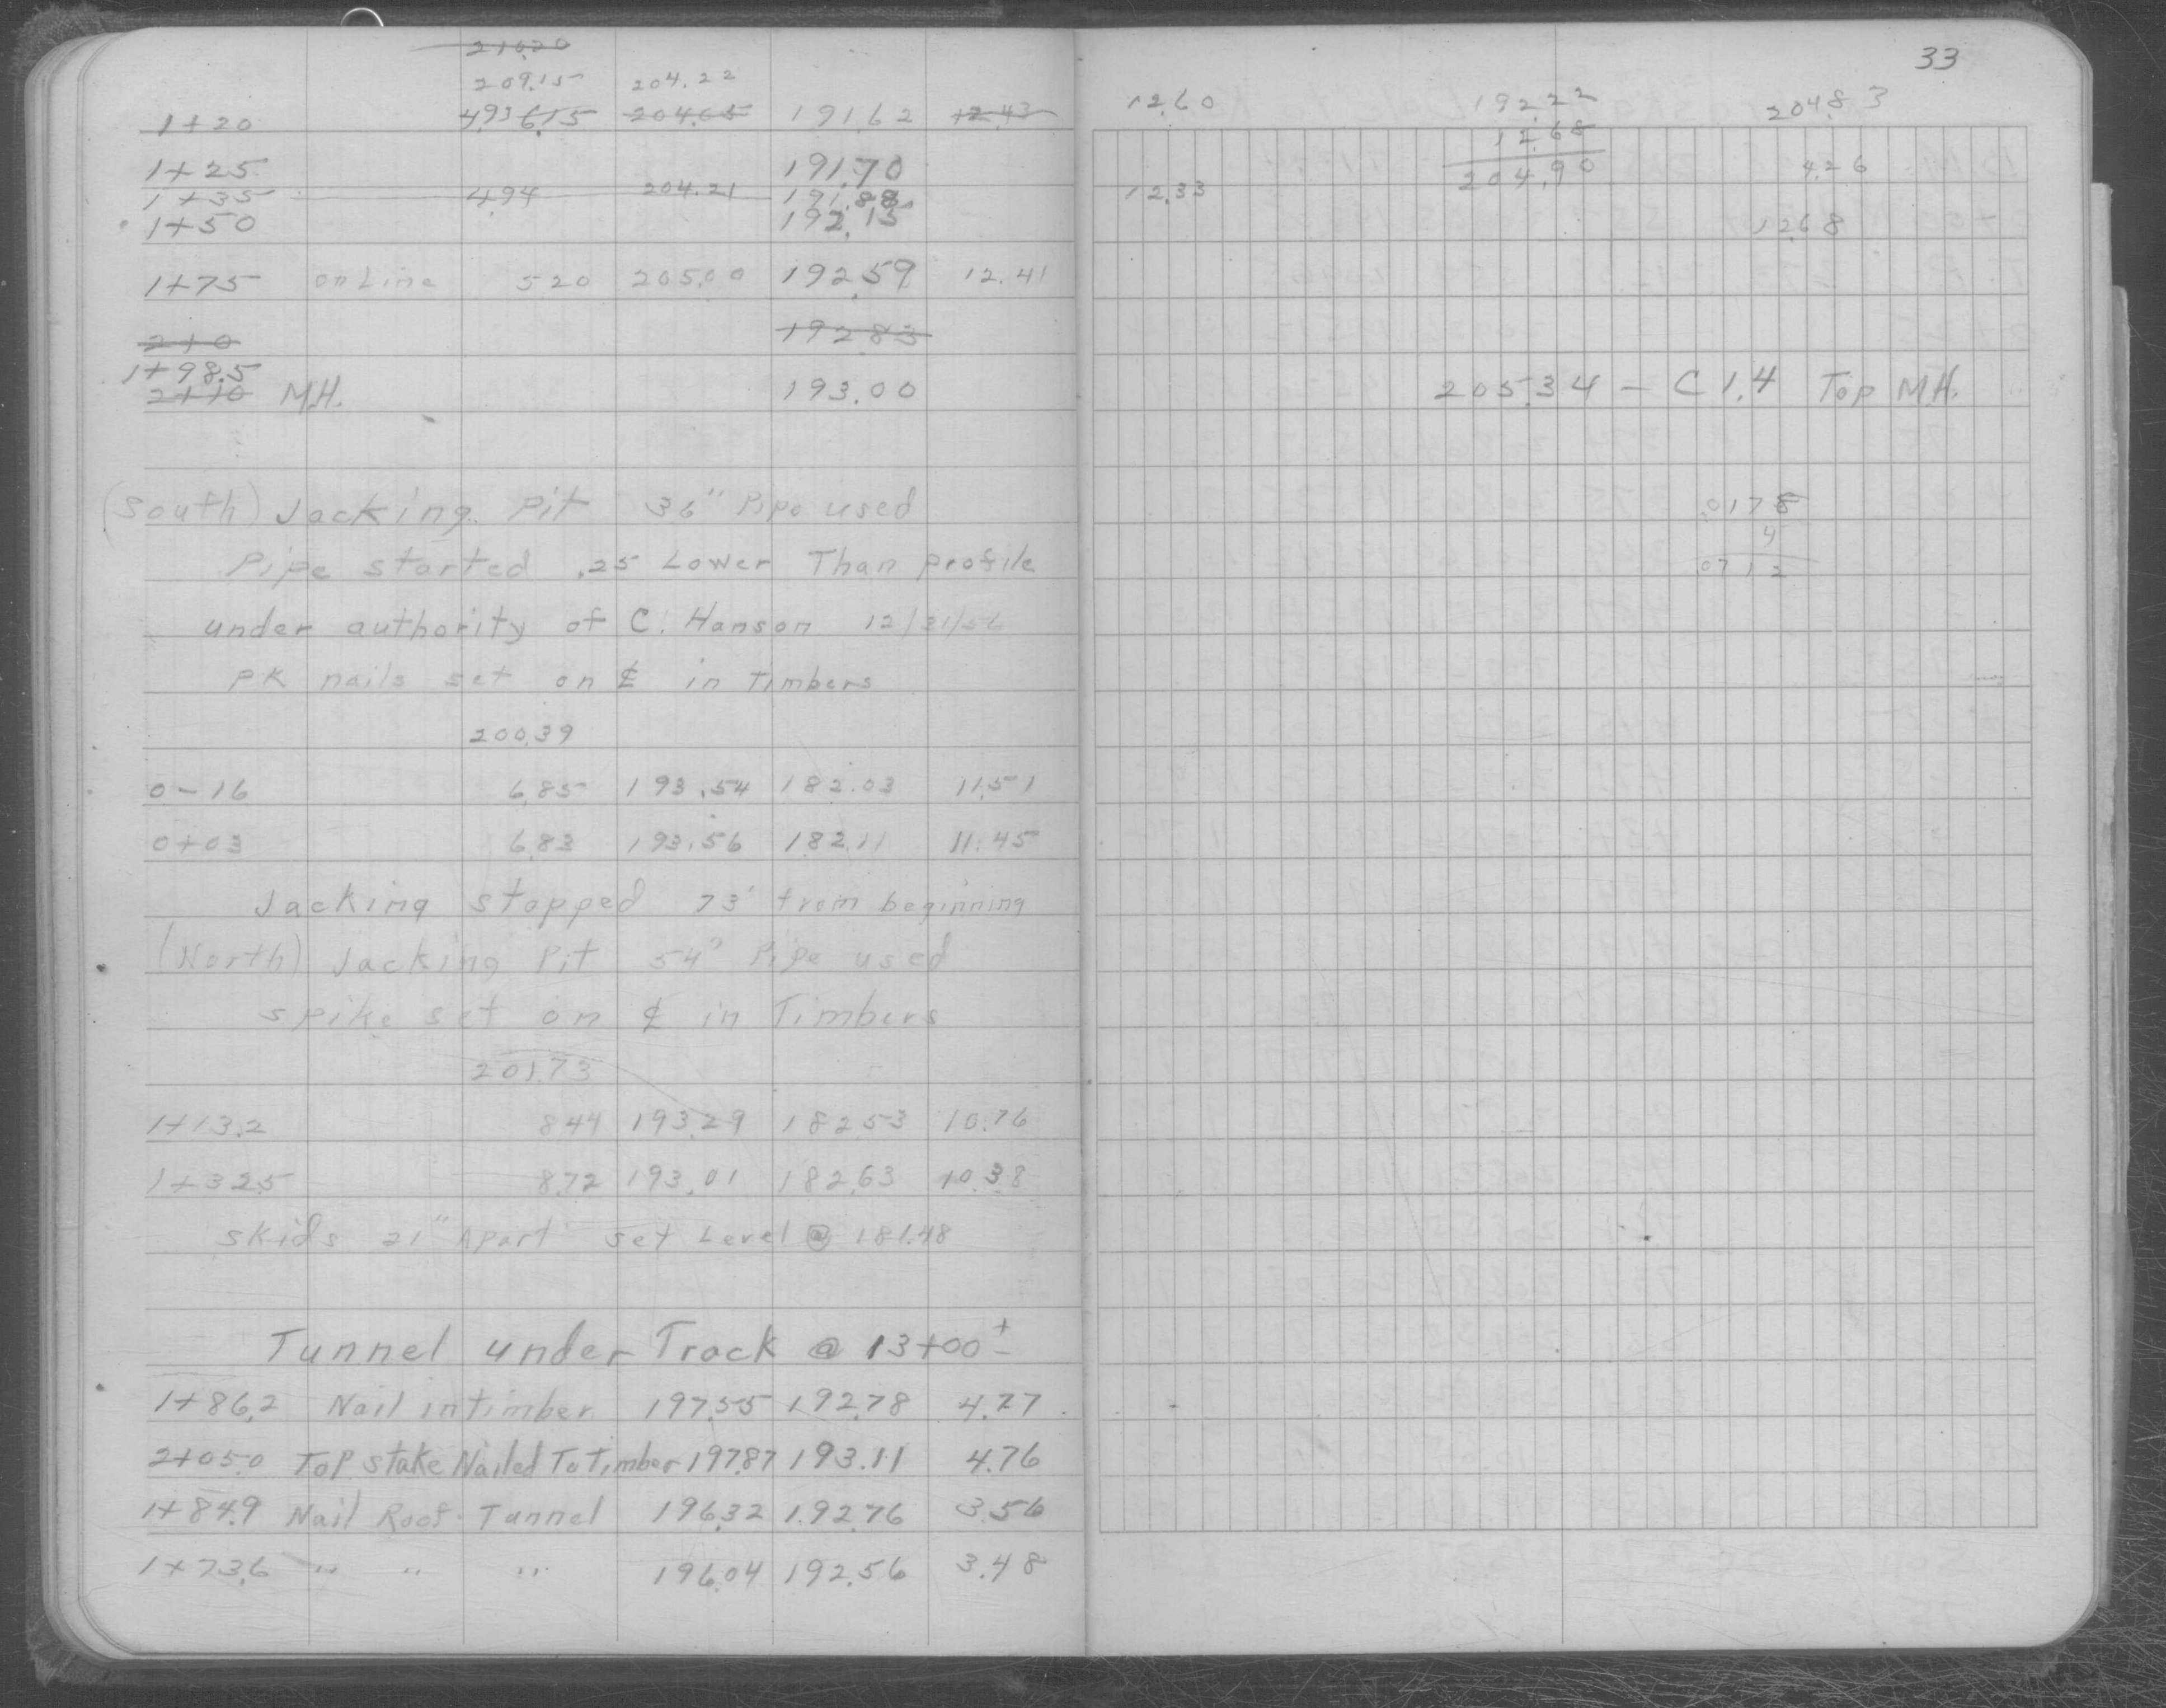 210.20
209.15 204.22
1+20 4.93 6.15 204.05 191.62 12.43
1+25 191.70
1+35 4.94 204.21 191.88
1+50 192.15
1+75 on Line 5 20 205.00 192.59 12.41
2+0 192.83
1+98.5
2+10 M.H. 193.00
(South) Jacking Pit 36" Pipe used
Pipe started .25 Lower Than profile
under authority of C. Hanson 12/31/56
PK nails set on ℄ in Timbers
200.39
0-16 6.85 193.54 182.03 11.51
0+03 6.83 193.56 182.11 11.45
Jacking stopped 73' from beginning
(North) Jacking Pit 54" Pipe used
spike set on ℄ in Timbers
201.73
1+13.2 8.44 193.29 182.53 10.76
1+32.5 8.72 193.01 182.63 10.38
skids 21" Apart set Level @ 181.48
Tunnel under Track @ 13+00 ±
1+86.2 Nail in timber 197.55 192.78 4.77
2+05.0 Top stake Nailed To timber 197.87 193.11 4.76
1+84.9 Nail Roof Tunnel 196.32 192.76 3.56
1+73.6 " " " 196.04 192.56 3.48
33
12.60 192.22 204.83
12.68 4.26
12.33 204.90
12.68
205.34 - C 1.4 Top M.H.
.0178
4
.0712